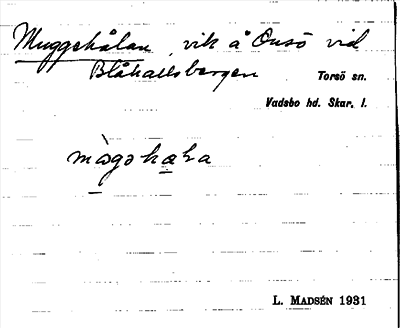 Muggehålan, vik å Onsö vid
Blåhallsbergen
Torsö sn.
Vadsbo hd. Skar. l.
L. MADSÉN 1931